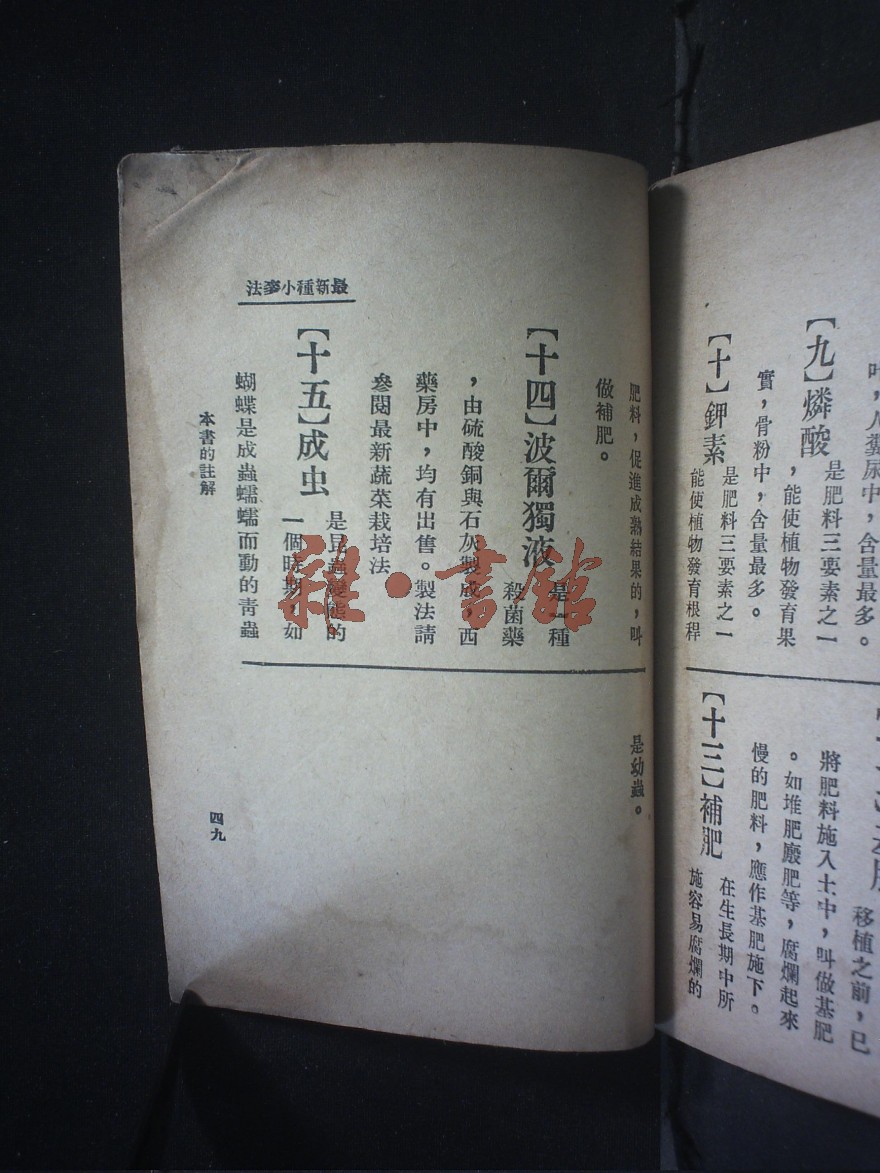 叶,人糞尿中,含量最多。
【九】燐酸
是肥料三要素之一
,能使植物發育果
實,骨粉中,含量最多。
【十】鉀素
是肥料三要素之一
能使植物發育根稈
移植之前,已
將肥料施入土中,叫做基肥
。如堆肥廄肥等,腐爛起來
慢的肥料,應作基肥施下。
【十三】補肥
在生長期中所
施容易腐爛的
最新種小麥法
肥料,促進成熟結果的,叫
做補肥。
【十四】波爾獨液
是一種
殺菌藥
,由硫酸銅與石灰製成,西
藥房中,均有出售。製法請
參閱最新蔬菜栽培法
【十五】成虫
是昆蟲變態的
一個時期,如
蝴蝶是成蟲蠕蠕而動的青蟲
是幼蟲。
本書的註解
四九
雜·書館